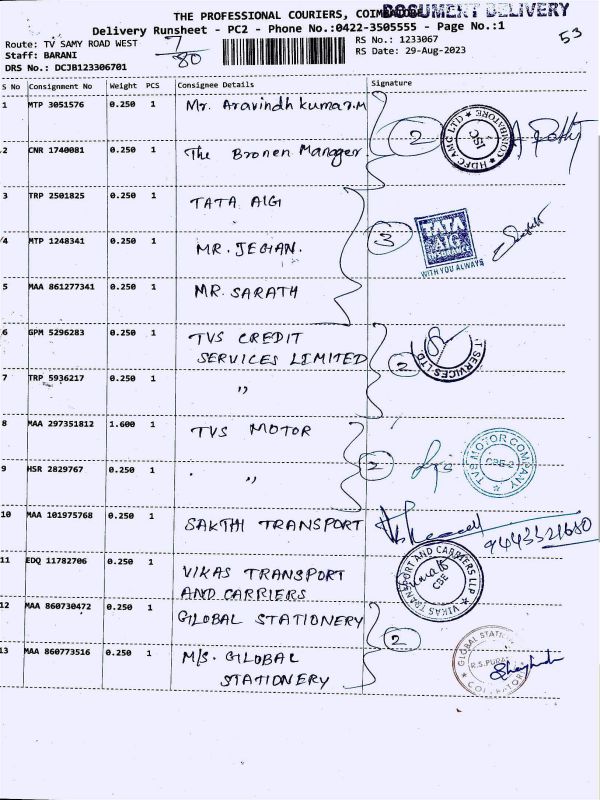 THE PROFESSIONAL COURIERS, COIMBATORE
DOCUMENT DELIVERY
Delivery Runsheet - PC2 - Phone No.:0422-3505555 - Page No.:1
53
Route: TV SAMY ROAD WEST
7/80
RS No.: 1233067
Staff: BARANI
RS Date: 29-Aug-2023
DRS No.: DCJB123306701
S No Consignment No Weight PCS Consignee Details Signature
1 MTP 3051576 0.250 1 Mr. Aravindh kumar.M
2 CNR 1740081 0.250 1 The Bronen Manager
2
HDFC AMC LTD * COIMBATORE *
ISC
3 TRP 2501825 0.250 1 TATA AIG
4 MTP 1248341 0.250 1 MR. JEGAN.
3
TATA
AIG
INSURANCE
WITH YOU ALWAYS
5 MAA 861277341 0.250 1 MR. SARATH
6 GPM 5296283 0.250 1 TVS CREDIT
SERVICES LIMITED
2
T SERVICES LTD.
7 TRP 5936217 0.250 1 "
8 MAA 297351812 1.600 1 TVS MOTOR
2
TVS MOTOR COMPANY
CBE-2
9 HSR 2829767 0.250 1 "
10 MAA 101975768 0.250 1 SAKTHI TRANSPORT
9443321680
11 EDQ 11782706 0.250 1 VIKAS TRANSPORT
AND CARRIERS
VIKAS TRANSPORT AND CARRIERS LLP
CBE
12 MAA 860730472 0.250 1 GLOBAL STATIONERY
2
13 MAA 860773516 0.250 1 M/S. GLOBAL
STATIONERY
GLOBAL STATION
R.S.PURAM